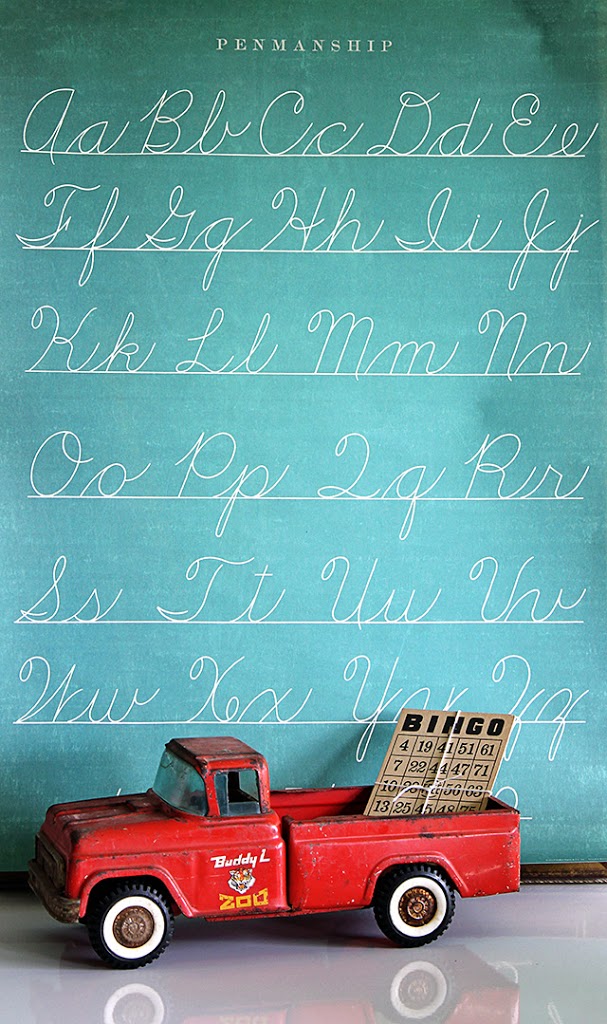 PENMANSHIP
Aa Bb Cc Dd Ee
Ff Gg Hh Ii Jj
Kk Ll Mm Nn
Oo Pp Qq Rr
Ss Tt Uu Vv
Ww Xx Yy Zz
BINGO
4 19 41 51 61
7 22 44 47 71
10 63
13 25 45 48 75
Buddy L
ZOO